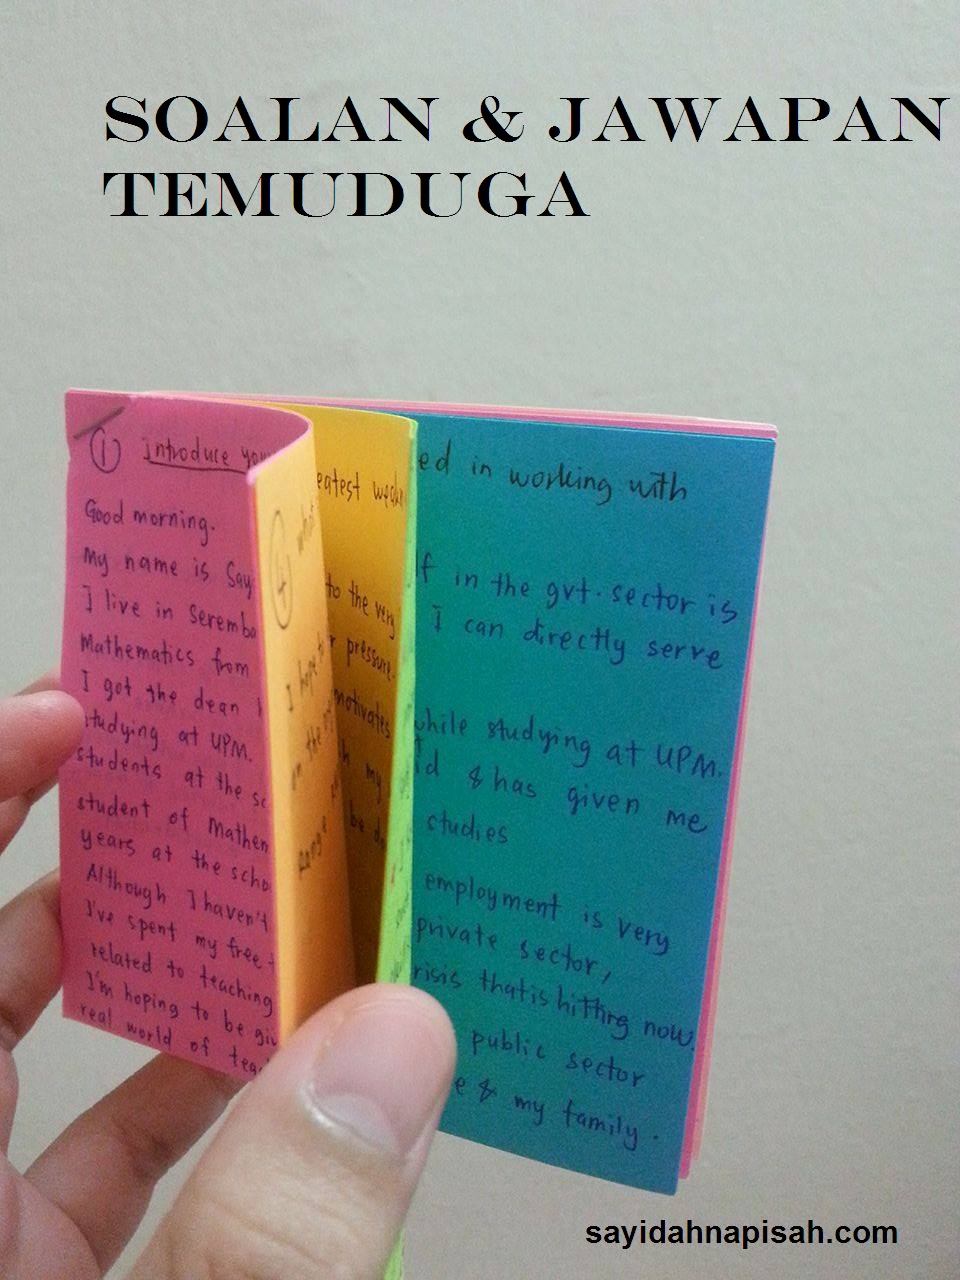 SOALAN & JAWAPAN
TEMUDUGA
① Introduce you
Good morning.
My name is Say
I live in Seremba
Mathematics from
I got the dean l
studying at UPM.
students at the sc
student of Mathem
years at the scho
Although I haven't
I've spent my free t
related to teaching
I'm hoping to be giv
real world of tea
④ what
I hope t
on the
range
eatest weakn
to the very
r pressure.
motivates
h my
be do
ed in working with
lf in the gvt. sector is
I can directly serve
while studying at UPM.
id & has given me
studies
employment is very
private sector,
risis that is hitting now.
public sector
e & my family.
sayidahnapisah.com